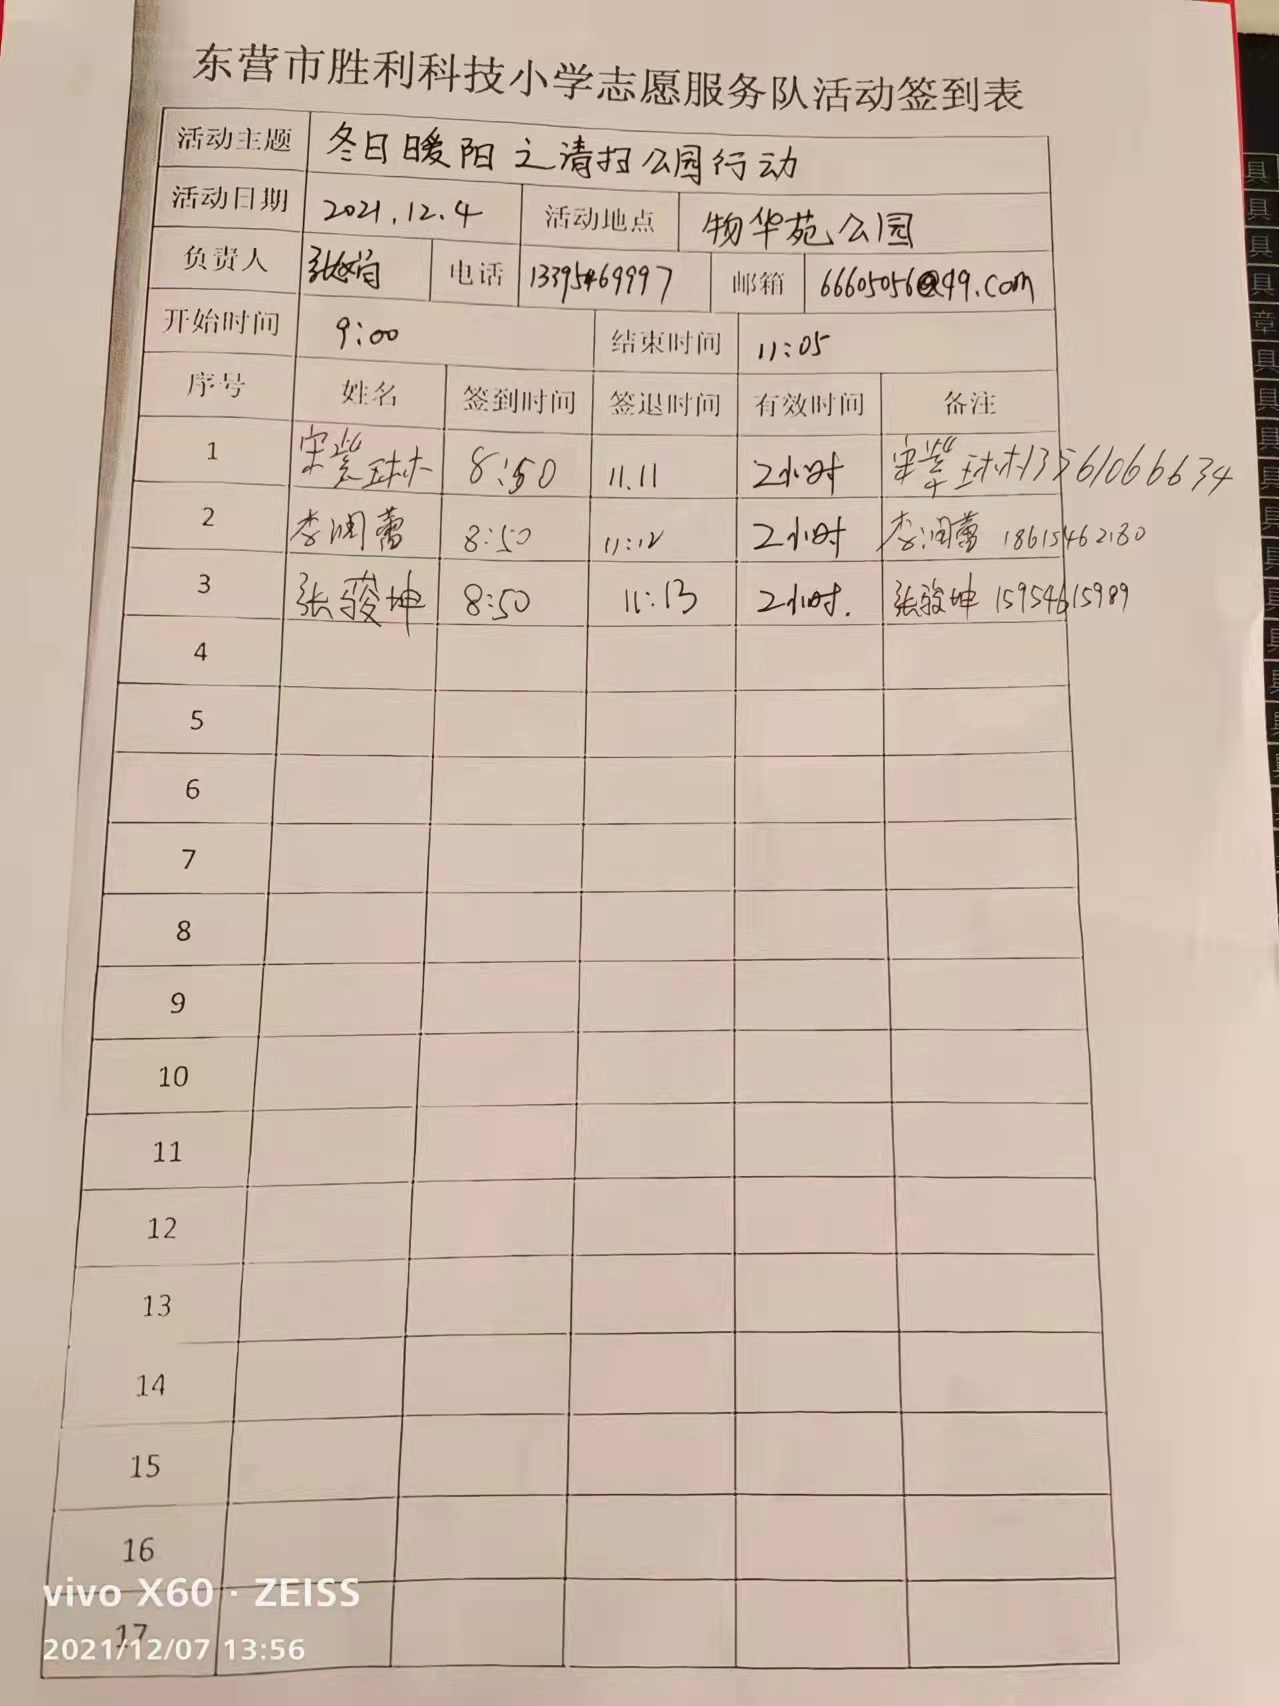 东营市胜利科技小学志愿服务队活动签到表
活动主题 冬日暖阳之清扫公园行动
活动日期 2021.12.4 活动地点 物华苑公园
负责人 电话 13395469997 邮箱 66605056@qq.com
开始时间 9:00 结束时间 11:05
序号 姓名 签到时间 签退时间 有效时间 备注
1 宋紫琳 8:50 11.11 2小时 宋紫琳 13561066634
2 李润蕾 8:50 11:12 2小时 李润蕾 18615462180
3 张骏坤 8:50 11:13 2小时. 张骏坤 15954615989
4
5
6
7
8
9
10
11
12
13
14
15
16
17
vivo X60 · ZEISS
2021/12/07 13:56
具
具
具
具
章
具
具
具
具
具
具
具
具